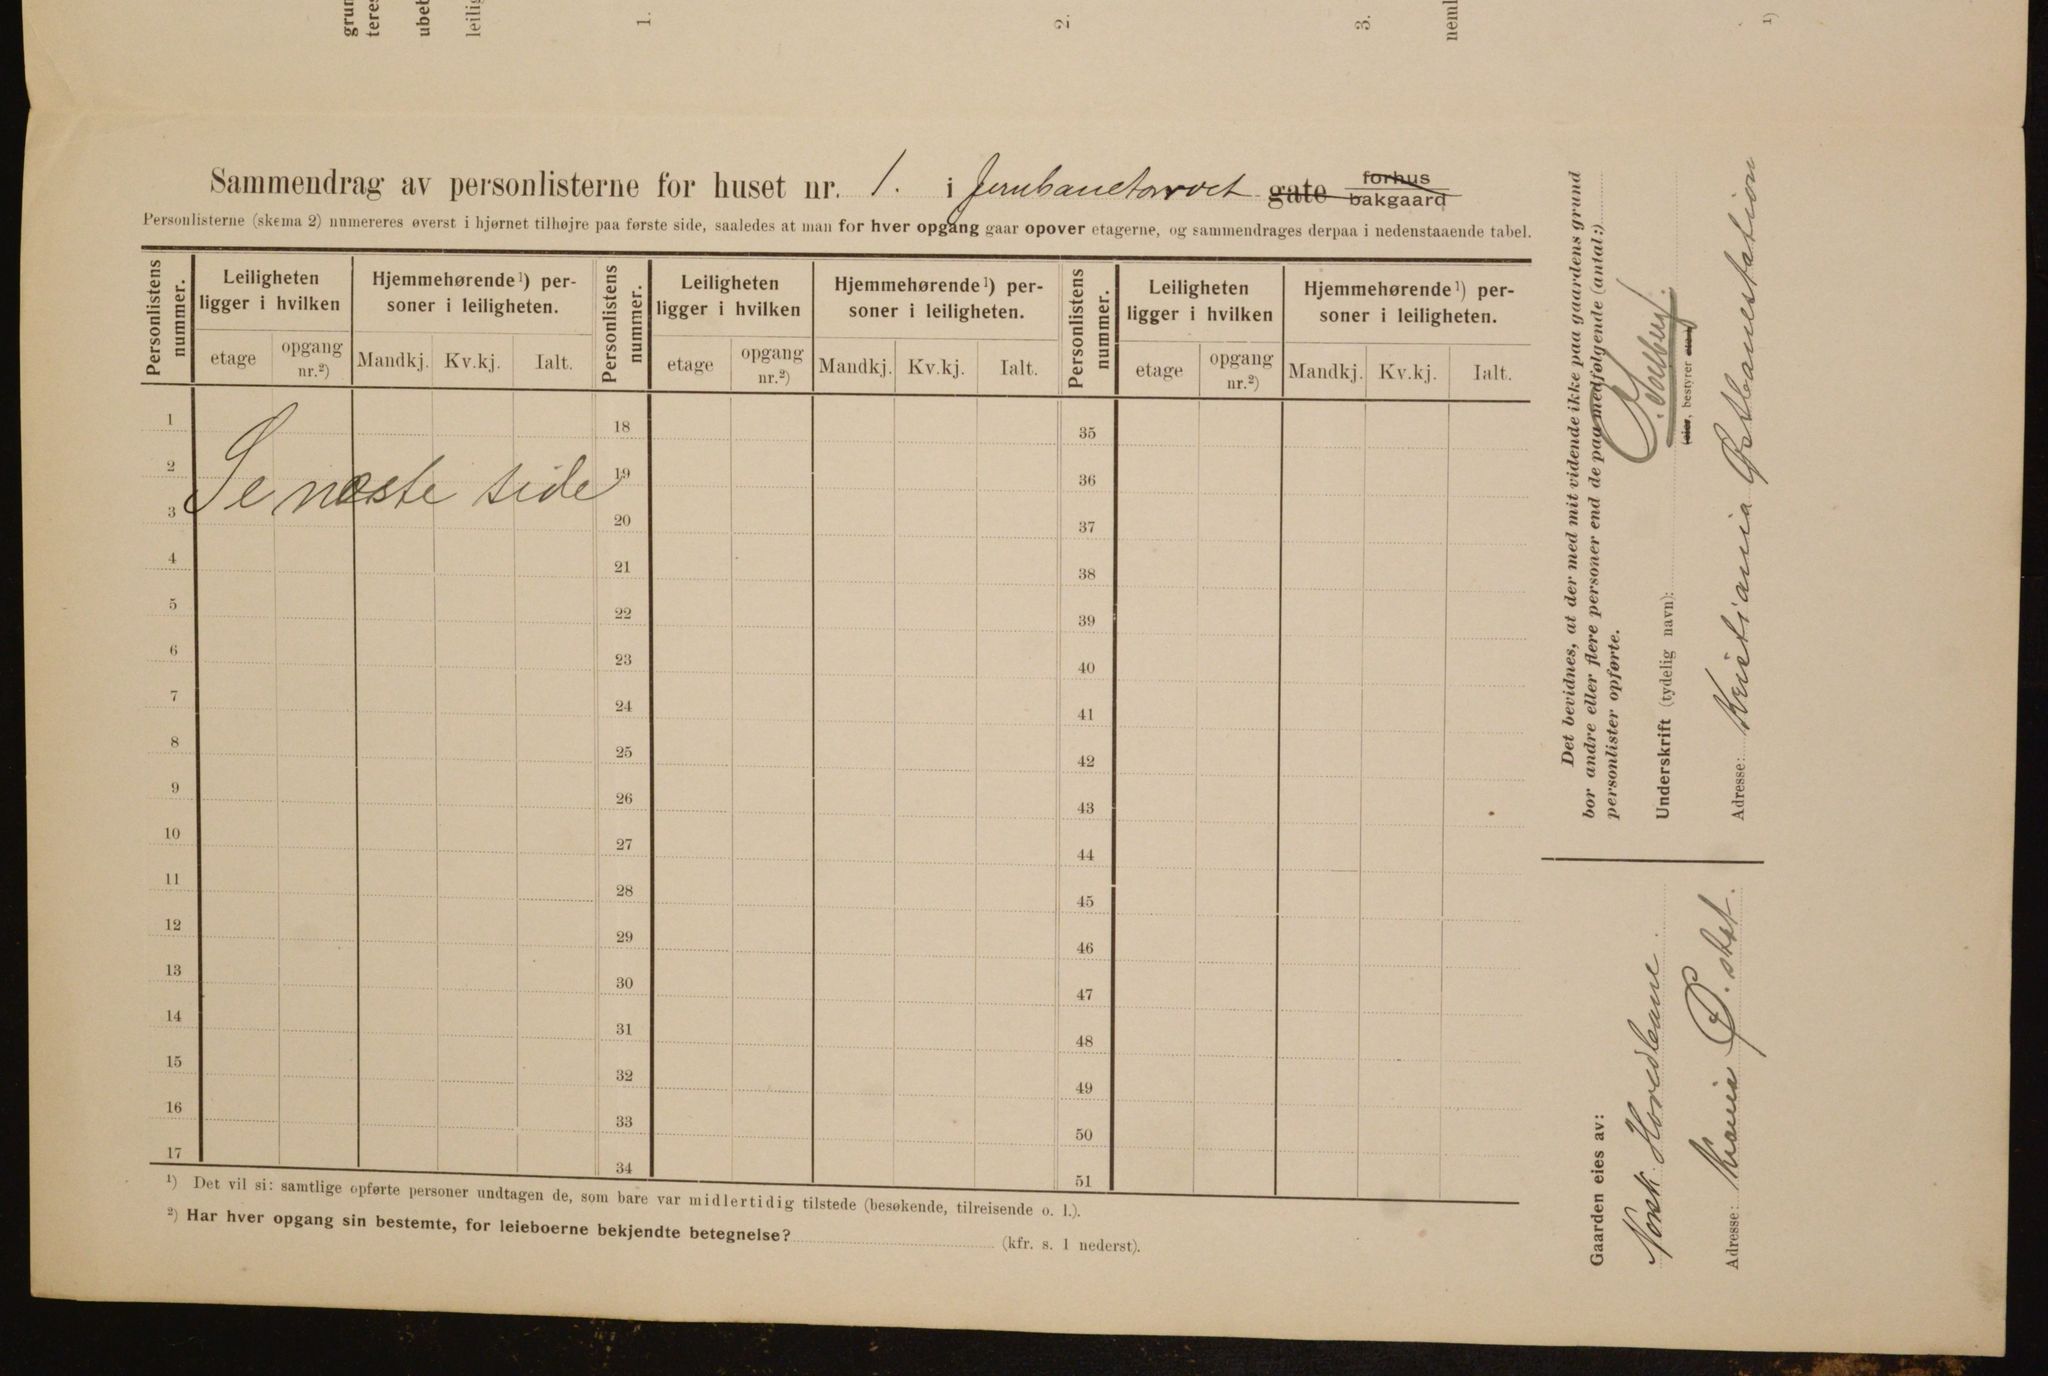 grun
teres
ubeb
leilig
1.
2.
3.
neml
1)
Sammendrag av personlisterne for huset nr. 1. i Jernbanetorvet gate forhus bakgaard
Personlisterne (skema 2) nummereres øverst i hjørnet tilhøjre paa første side, saaledes at man for hver opgang gaar opover etagerne, og sammendrages derpaa i nedenstaaende tabel.
Personlistens nummer.
Leiligheten ligger i hvilken
etage
opgang nr.2)
Hjemmehørende1) personer i leiligheten.
Mandkj.
Kv.kj.
Ialt.
Personlistens nummer.
Leiligheten ligger i hvilken
etage
opgang nr.2)
Hjemmehørende1) personer i leiligheten.
Mandkj.
Kv.kj.
Ialt.
Personlistens nummer.
Leiligheten ligger i hvilken
etage
opgang nr.2)
Hjemmehørende1) personer i leiligheten.
Mandkj.
Kv.kj.
Ialt.
1 18 35
2 19 36
Se næste side
3 20 37
4 21 38
5 22 39
6 23 40
7 24 41
8 25 42
9 26 43
10 27 44
11 28 45
12 29 46
13 30 47
14 31 48
15 32 49
16 33 50
17 34 51
1) Det vil si: samtlige opførte personer undtagen de, som bare var midlertidig tilstede (besøkende, tilreisende o. l.).
2) Har hver opgang sin bestemte, for leieboerne bekjendte betegnelse? (kfr. s. 1 nederst).
Det bevidnes, at der med mit vidende ikke paa gaardens grund
bor andre eller flere personer end de paa medfølgende (antal:)
personlister opførte.
Underskrift (tydelig navn): Solberg.
(eier, bestyrer etc.)
Adresse: Kristiania Østbanestation
Gaarden eies av:
Norsk Hovedbane.
Adresse: Krania Ø. stat.